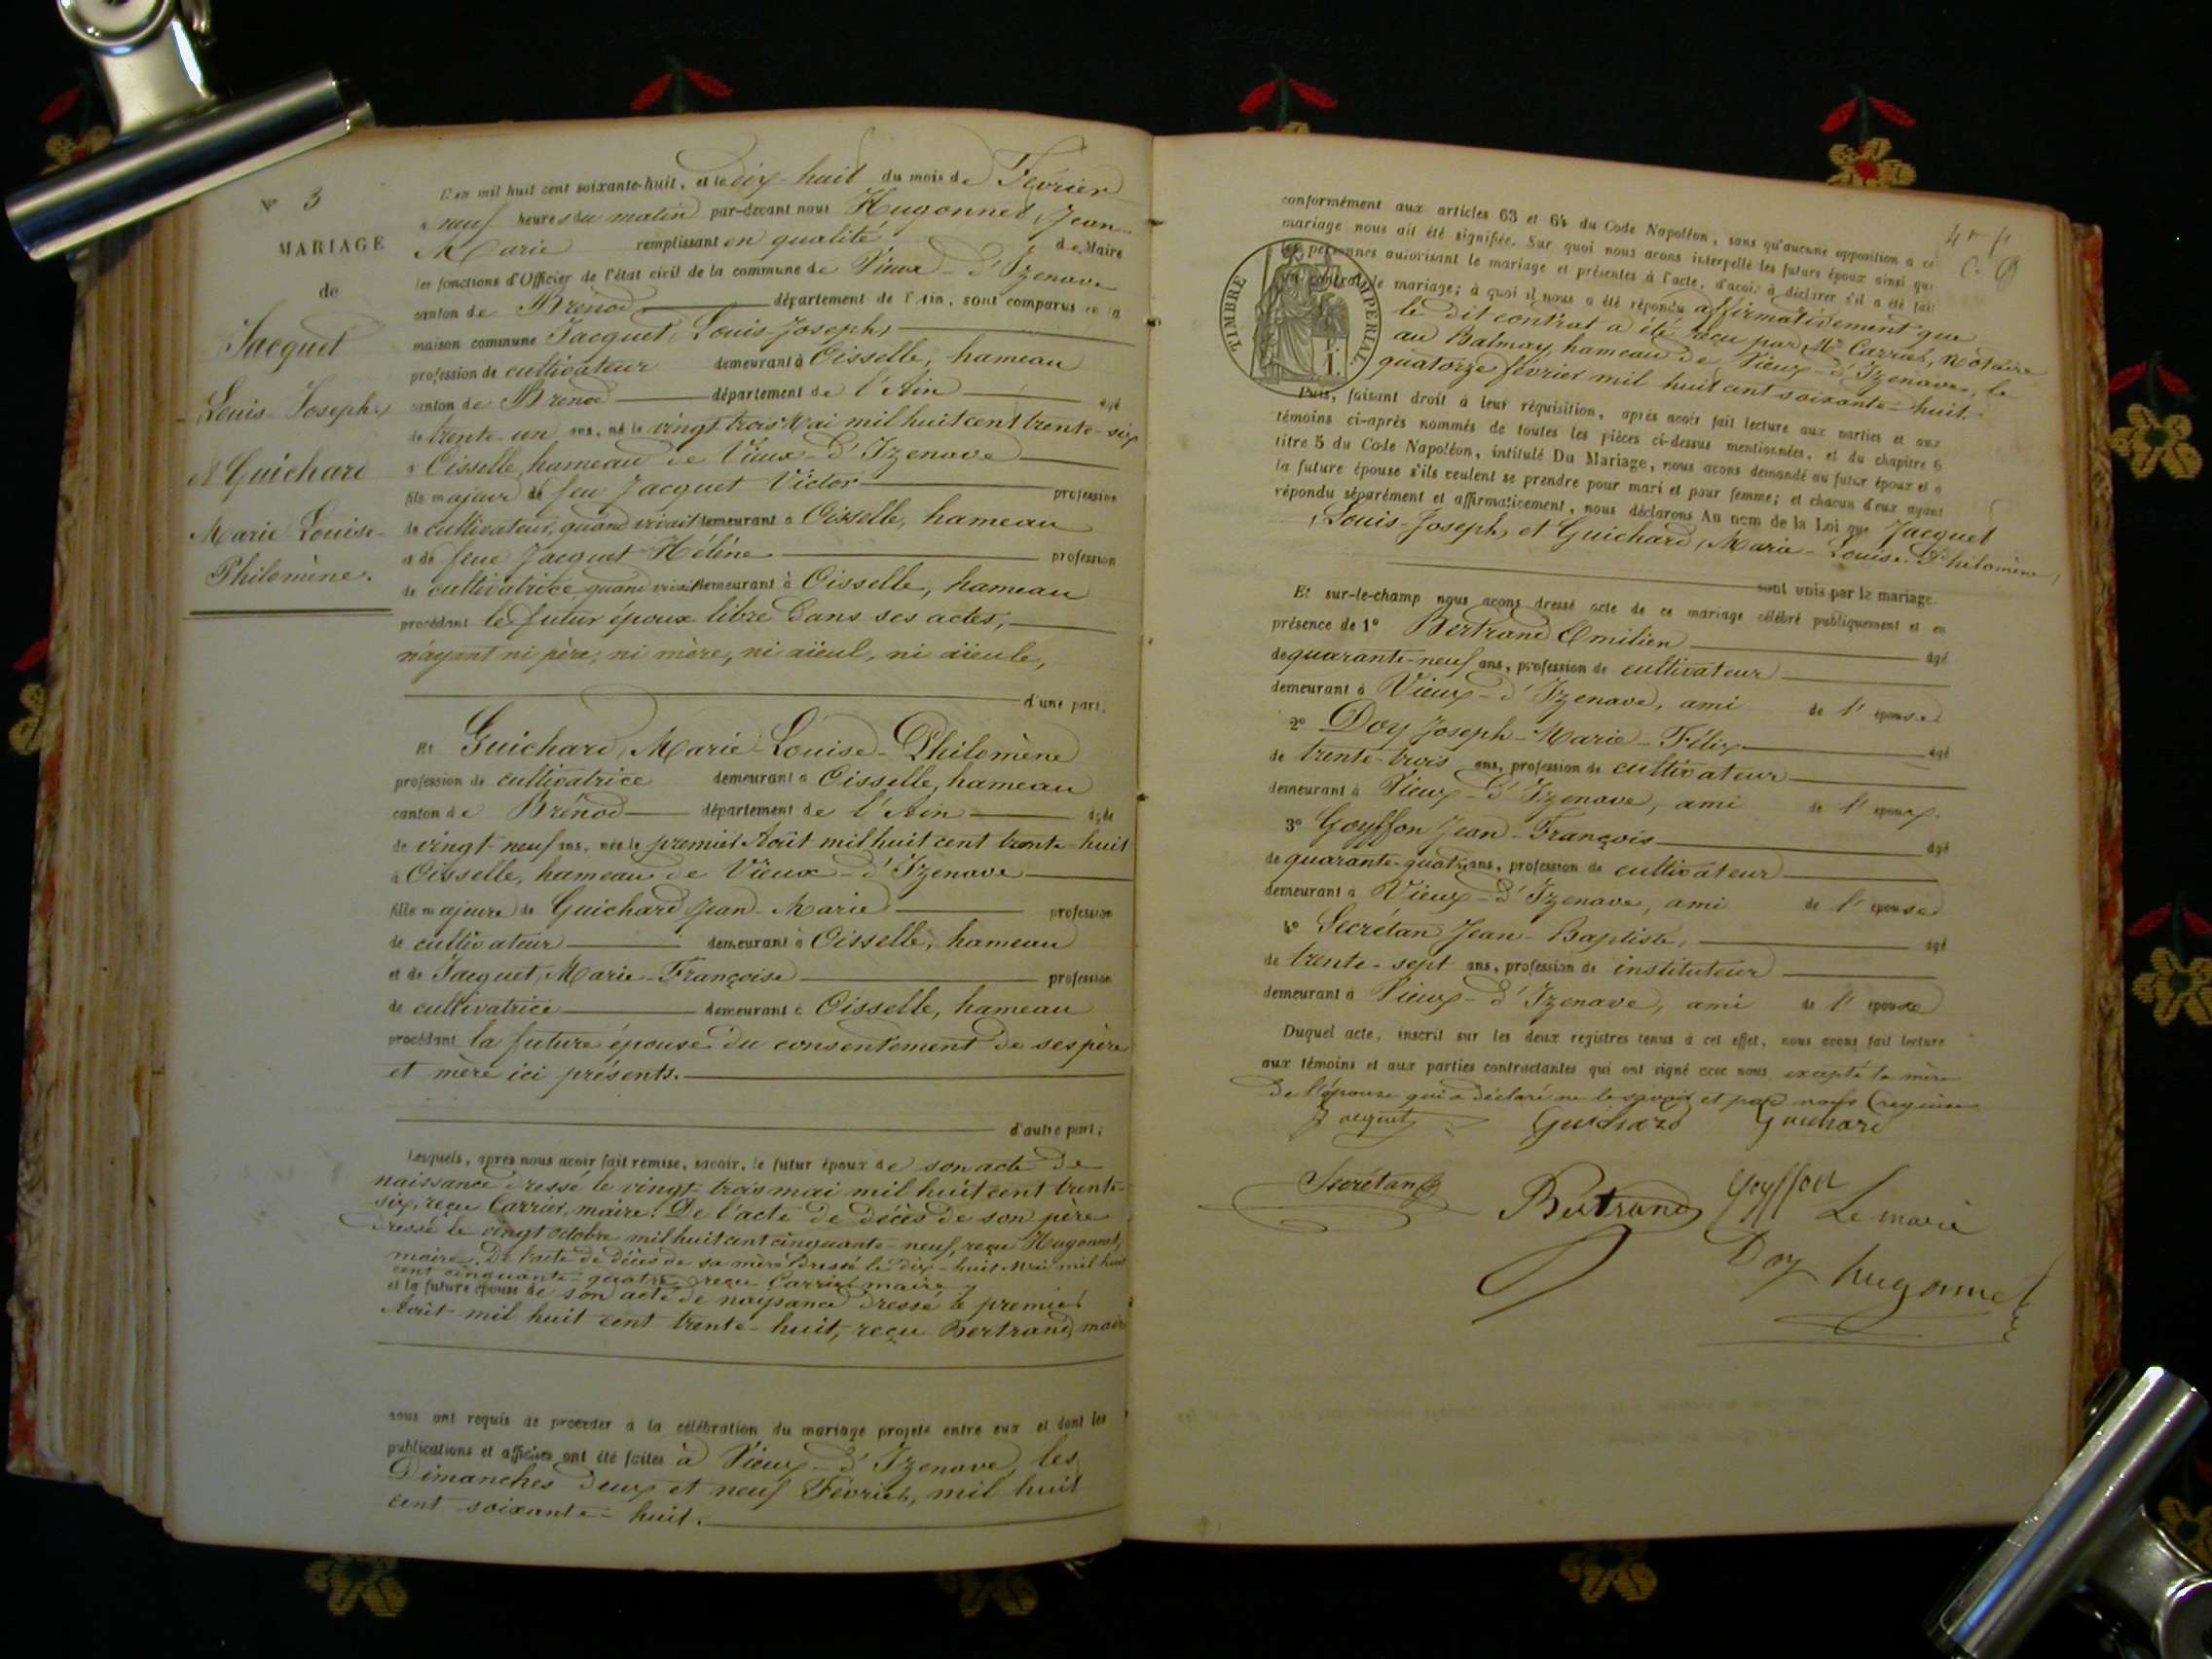 N° 3
MARIAGE
de
Jacquet
Louis Joseph,
et Guichard
Marie Louise-
Philomène.
L'an mil huit cent soixante-huit, et le dix-huit du mois de Février
à neuf heures du matin par-devant nous Hugonnet, Jean-
Marie remplissant en qualité de Maire
les fonctions d'Officier de l'état civil de la commune de Vieux-d'Izenave
canton de Brénod département de l'Ain, sont comparus en la
maison commune Jacquet, Louis-Joseph,
profession de cultivateur demeurant à Oisselle, hameau
canton de Brénod département de l'Ain âgé
de trente-un ans, né le vingt trois Mai mil huit cent trente-six
à Oisselle, hameau de Vieux-d'Izenave
fils majeur de feu Jacquet Victor profession
de cultivateur, quand vivait demeurant à Oisselle, hameau
et de feue Jacquet Hélène profession
de cultivatrice, quand vivait demeurant à Oisselle, hameau
procédant le futur époux libre dans ses actes,
n'ayant ni père, ni mère, ni aïeul, ni aïeule,
d'une part.
Et Guichard, Marie-Louise-Philomène
profession de cultivatrice demeurant à Oisselle, hameau
canton de Brénod département de l'Ain âgée
de vingt-neuf ans, née le premier Août mil huit cent trente-huit
à Oisselle, hameau de Vieux-d'Izenave
fille majeure de Guichard Jean-Marie profession
de cultivateur demeurant à Oisselle, hameau
et de Jacquet, Marie-Françoise profession
de cultivatrice demeurant à Oisselle, hameau
procédant la future épouse du consentement de ses père
et mère ici présents.
d'autre part;
Lesquels, après nous avoir fait remise, savoir, le futur époux de son acte de
naissance dressé le vingt-trois mai mil huit cent trente-
six, reçu Carrier, maire. De l'acte de décès de son père
dressé le vingt octobre mil huit cent cinquante-neuf, reçu Hugonnet,
maire. De l'acte de décès de sa mère dressé le dix-huit Mai mil huit
cent cinquante-quatre, reçu Carrier maire
et la future épouse de son acte de naissance dressé le premier
Août mil huit cent trente-huit, reçu Bertrand, maire
nous ont requis de procéder à la célébration du mariage projeté entre eux et dont les
publications et affiches ont été faites à Vieux-d'Izenave, les
Dimanches deux et neuf Février, mil huit
cent soixante-huit.
4 r
conformément aux articles 63 et 64 du Code Napoléon, sans qu'aucune opposition à ce
mariage nous ait été signifiée. Sur quoi nous avons interpellé les futurs époux ainsi que
les personnes autorisant le mariage et présentes à l'acte, d'avoir à déclarer s'il a été fait
un contrat de mariage; à quoi il nous a été répondu affirmativement que
le dit contrat a été reçu par Me Carrier, Notaire
au Balmay, hameau de Vieux-d'Izenave, le
quatorze février mil huit cent soixante-huit.
TIMBRE IMPERIAL.
Puis, faisant droit à leur réquisition, après avoir fait lecture aux parties et aux
témoins ci-après nommés de toutes les pièces ci-dessus mentionnées, et du chapitre 6
titre 5 du Code Napoléon, intitulé Du Mariage, nous avons demandé au futur époux et à
la future épouse s'ils veulent se prendre pour mari et pour femme; et chacun d'eux ayant
répondu séparément et affirmativement, nous déclarons Au nom de la Loi que Jacquet
Louis-Joseph, et Guichard, Marie-Louise-Philomène,
sont unis par le mariage.
Et sur-le-champ nous avons dressé acte de ce mariage célébré publiquement et en
présence de 1° Bertrand Emilien âgé
de quarante-neuf ans, profession de cultivateur
demeurant à Vieux-d'Izenave, ami de l'épouse
2° Doy Joseph-Marie-Félix âgé
de trente-trois ans, profession de cultivateur
demeurant à Vieux-d'Izenave, ami de l'époux.
3° Goyffon Jean-François âgé
de quarante-quatre ans, profession de cultivateur
demeurant à Vieux-d'Izenave, ami de l'épouse
4° Secrétan Jean-Baptiste, âgé
de trente-sept ans, profession de instituteur
demeurant à Vieux-d'Izenave, ami de l'épouse
Duquel acte, inscrit sur les deux registres tenus à cet effet, nous avons fait lecture
aux témoins et aux parties contractantes qui ont signé avec nous excepté la mère
De l'épouse qui a déclaré ne le savoir et pas nous
Jacquet Guichard Guichard
Secrétan Bertrand Goyffon
Le maire
Doy Hugonnet